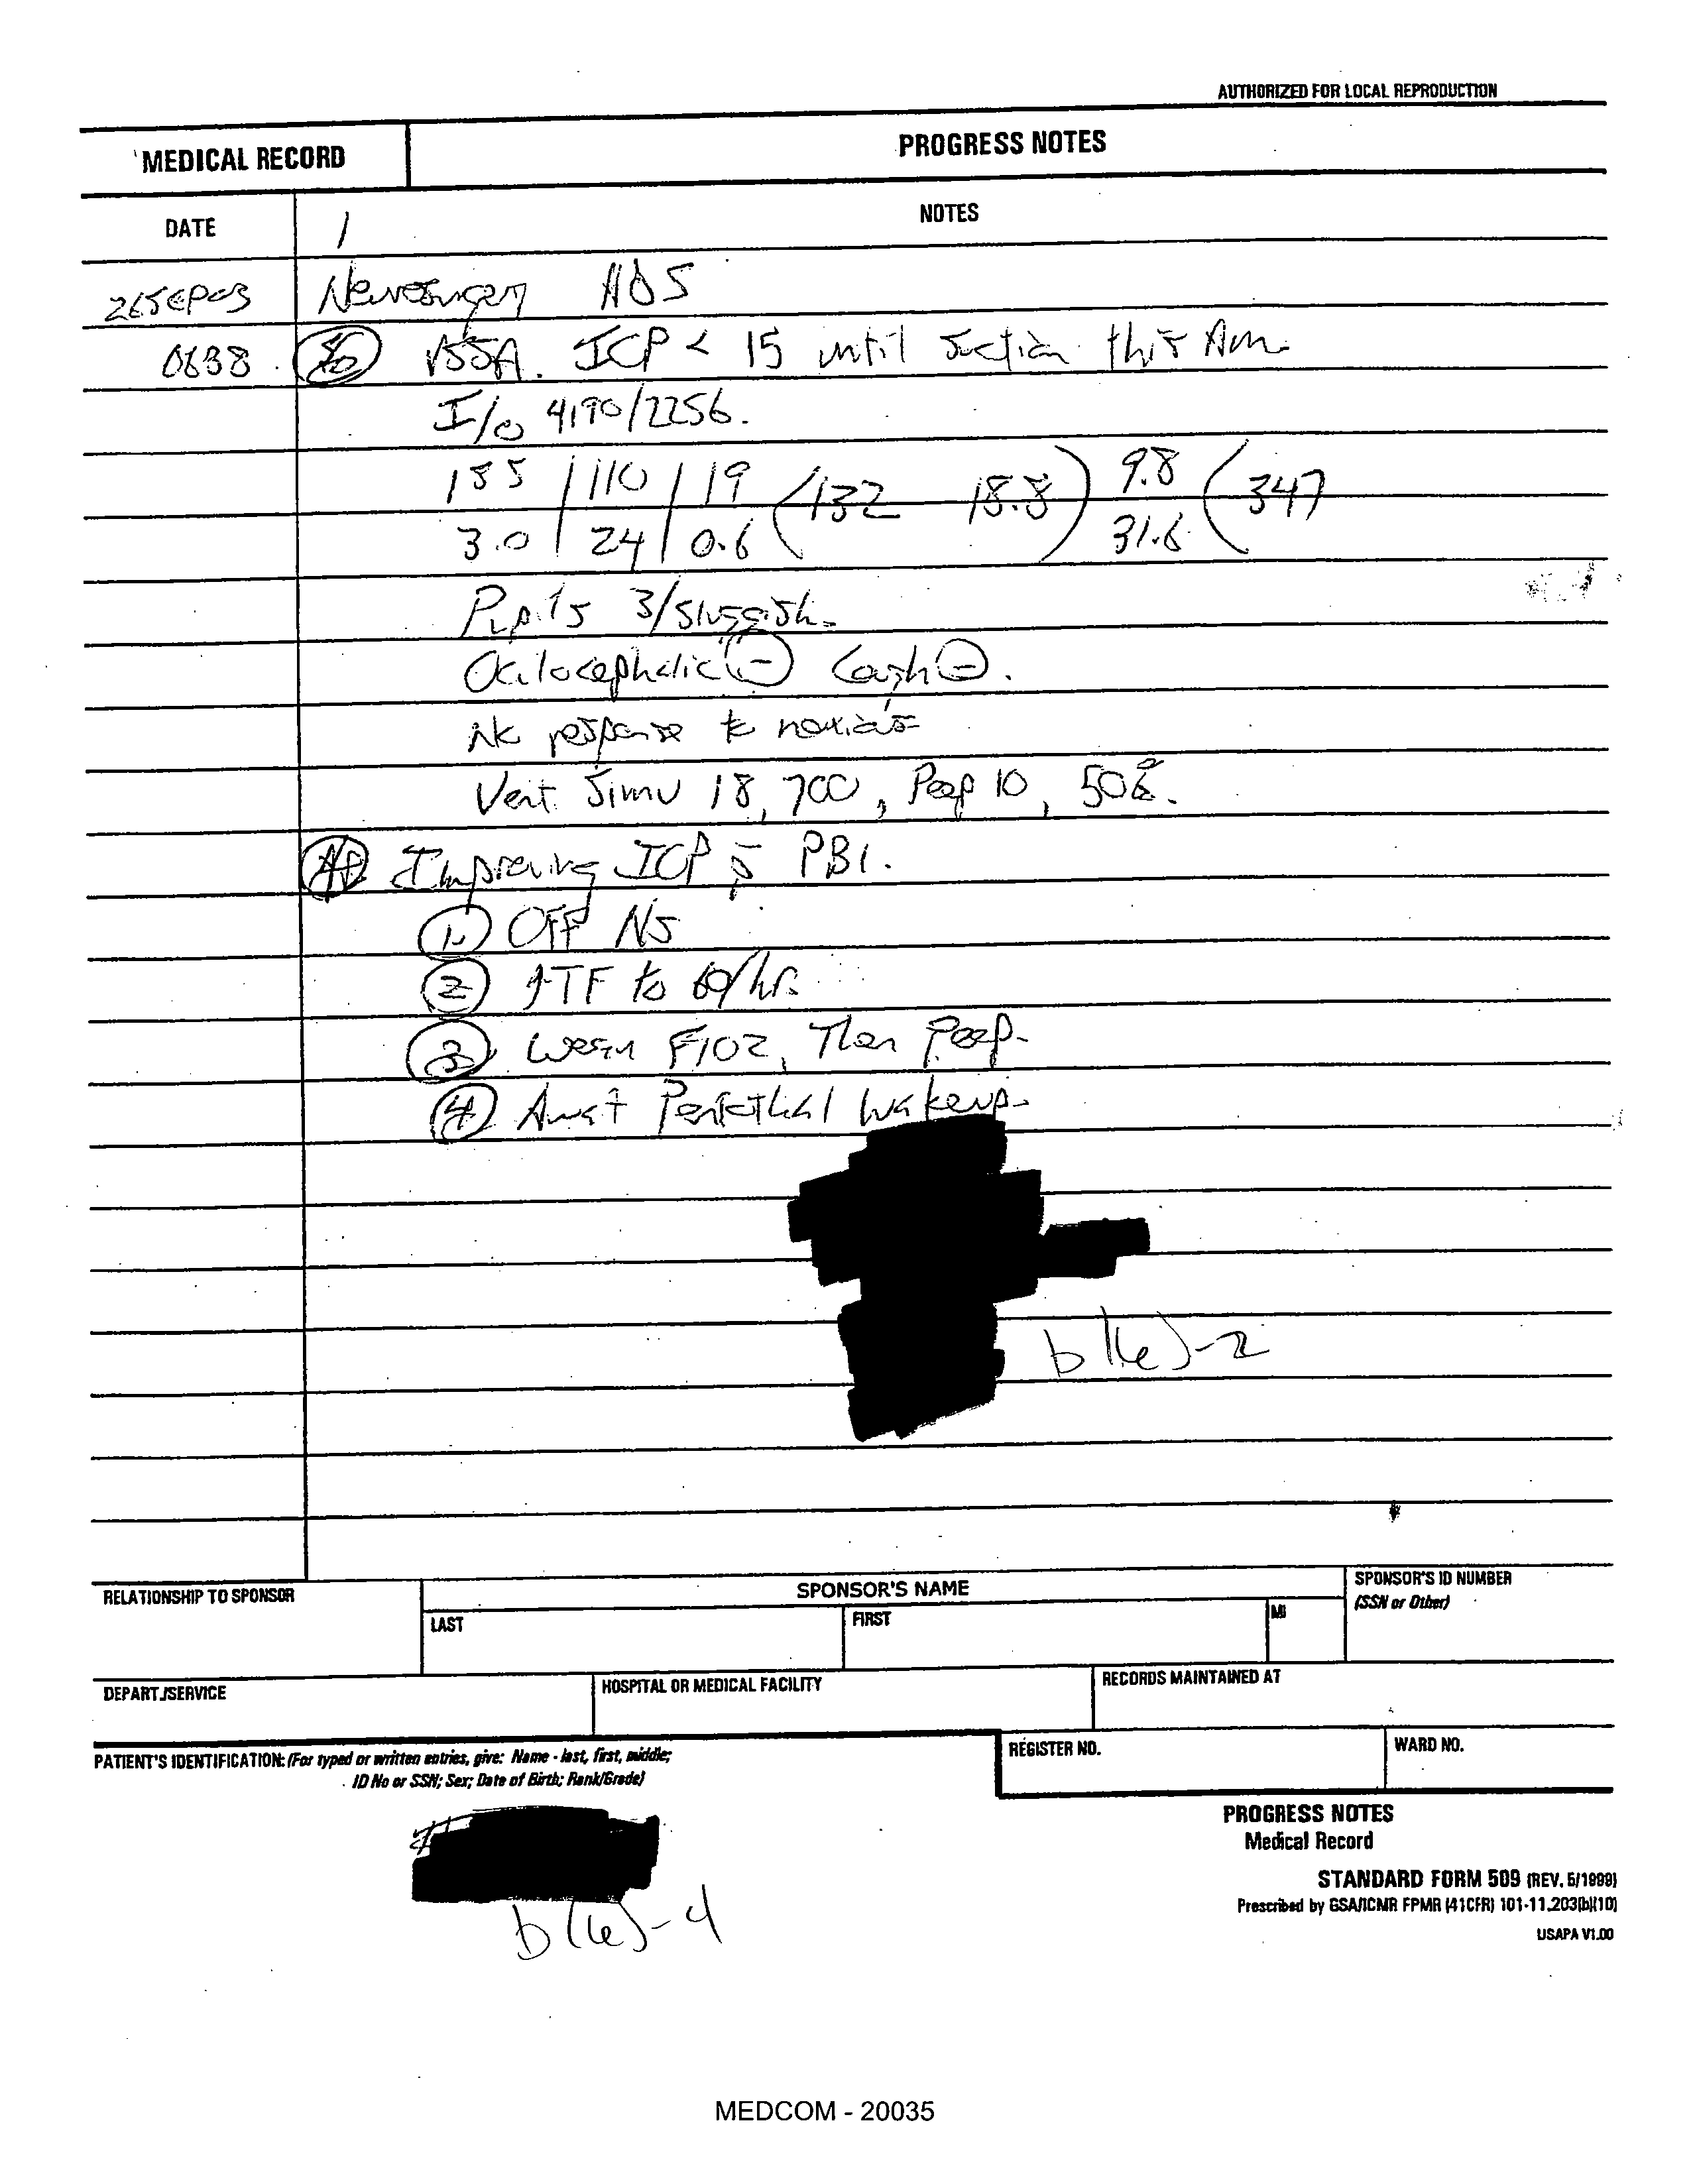 AUTHORIZED FOR LOCAL REPRODUCTION
MEDICAL RECORD
PROGRESS NOTES
DATE
NOTES
26SEP03 Neurosurgery
0638 VSSA. ICP < 15 until suction this Am.
I/O 4190/2256.
110 / 19 132 18.8 9.8 347
3.0 / 24 / 0.6 31.6
Pupils 3/sluggish.
Oculocephalic (-) Cough (-).
No response to noxious
Vent Simv 18, 700, Peep 10, 50%.
A/P Improving ICP PBI.
1. Off NS
2 ↑TF to 60/hr.
3 Wean FIO2, Then Peep.
4 Await Pentothal Wakeup.
b(6)-2
RELATIONSHIP TO SPONSOR
SPONSOR'S NAME
LAST
FIRST
MI
SPONSOR'S ID NUMBER
(SSN or Other)
DEPART./SERVICE
HOSPITAL OR MEDICAL FACILITY
RECORDS MAINTAINED AT
PATIENT'S IDENTIFICATION: (For typed or written entries, give: Name - last, first, middle;
ID No or SSN; Sex; Date of Birth; Rank/Grade)
REGISTER NO.
WARD NO.
b(6)-4
PROGRESS NOTES
Medical Record
STANDARD FORM 509 (REV. 5/1999)
Prescribed by GSA/ICMR FPMR (41CFR) 101-11.203(b)(10)
USAPA V1.00
MEDCOM - 20035